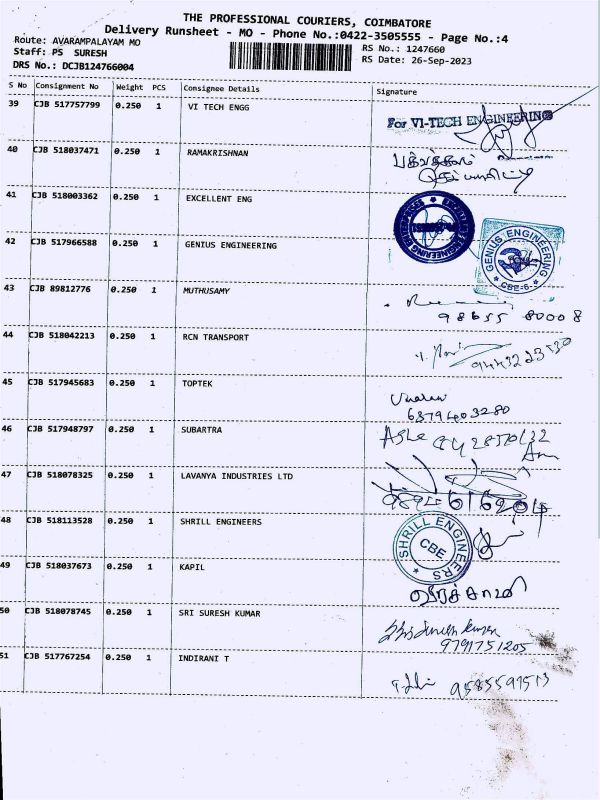 THE PROFESSIONAL COURIERS, COIMBATORE
Delivery Runsheet - MO - Phone No.:0422-3505555 - Page No.:4
Route: AVARAMPALAYAM MO
RS No.: 1247660
Staff: PS SURESH
RS Date: 26-Sep-2023
DRS No.: DCJB124766004
S No Consignment No Weight PCS Consignee Details Signature
39 CJB 517757799 0.250 1 VI TECH ENGG
For VI-TECH ENGINEERING
40 CJB 518037471 0.250 1 RAMAKRISHNAN
41 CJB 518003362 0.250 1 EXCELLENT ENG
42 CJB 517966588 0.250 1 GENIUS ENGINEERING
GENIUS ENGINEERING
CBE-6
43 CJB 89812776 0.250 1 MUTHUSAMY
98655 80008
44 CJB 518042213 0.250 1 RCN TRANSPORT
9443223530
45 CJB 517945683 0.250 1 TOPTEK
6379403280
46 CJB 517948797 0.250 1 SUBARTRA
47 CJB 518078325 0.250 1 LAVANYA INDUSTRIES LTD
48 CJB 518113528 0.250 1 SHRILL ENGINEERS
SHRILL ENGINEERS
CBE
49 CJB 518037673 0.250 1 KAPIL
50 CJB 518078745 0.250 1 SRI SURESH KUMAR
9791751205
51 CJB 517767254 0.250 1 INDIRANI T
9585597513